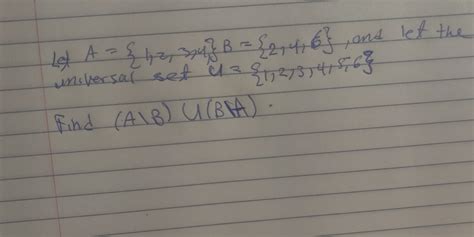 Let A = {1,2,3,4} B = {2,4,6}, and let the
universal set U = {1,2,3,4,5,6}
Find (A\B) U (B\A).